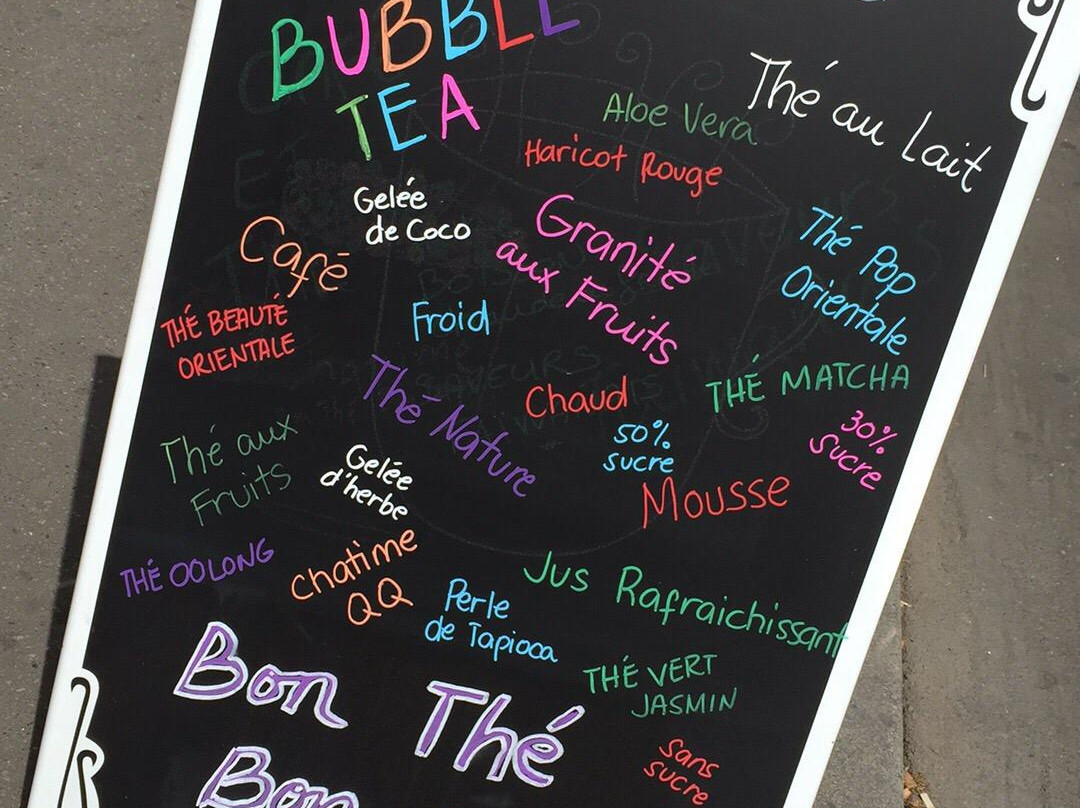 BUBBLE
TEA
Thé au Lait
Aloe Vera
Haricot Rouge
Gelée
de Coco
Granité
aux Fruits
Café
Thé Pop
Orientale
THÉ BEAUTÉ
ORIENTALE
Froid
Thé Nature
Chaud
THÉ MATCHA
50%
sucre
30%
sucre
Thé aux
Fruits
Gelée
d'herbe
Mousse
THÉ OOLONG
Chatime
QQ
Jus Rafraichissant
Perle
de Tapioca
THÉ VERT
JASMIN
Bon Thé
sans
sucre
Bon